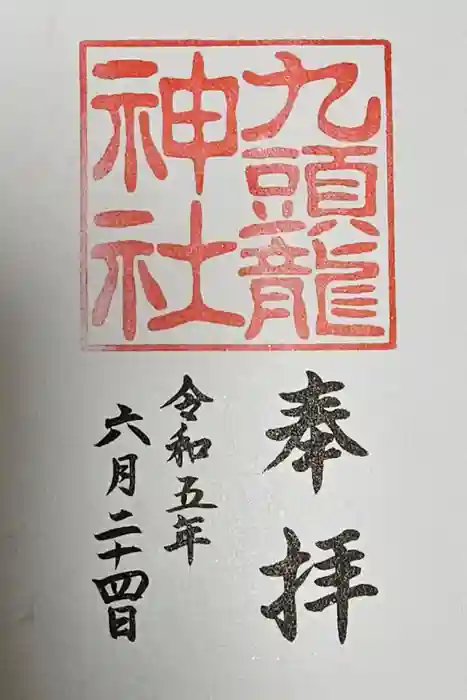 九頭龍
神社
奉拝
令和五年
六月二十四日